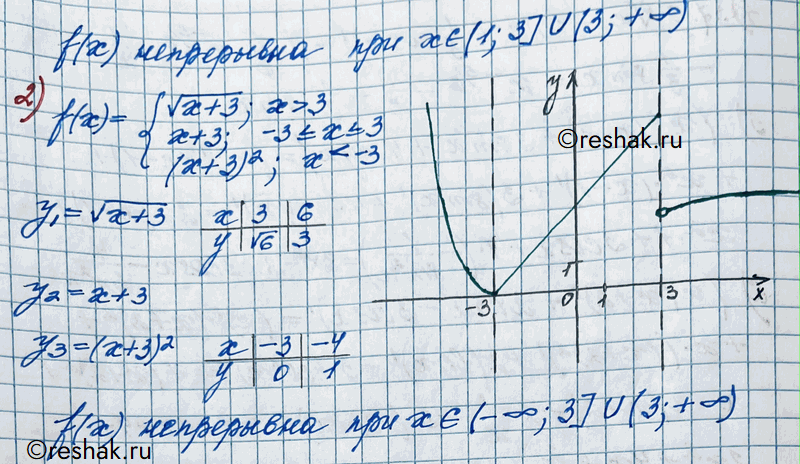 f(x) непрерывна при x∈(1; 3]∪(3; +∞)
2)
f(x)= { √x+3; x>3
x+3; -3≤x≤3
(x+3)²; x<-3
y₁=√x+3
x | 3 | 6
y | √6 | 3
y₂=x+3
y₃=(x+3)²
x | -3 | -4
y | 0 | 1
y
©reshak.ru
1
-3 0 1 3 x
f(x) непрерывна при x∈(-∞; 3]∪(3; +∞)
©reshak.ru